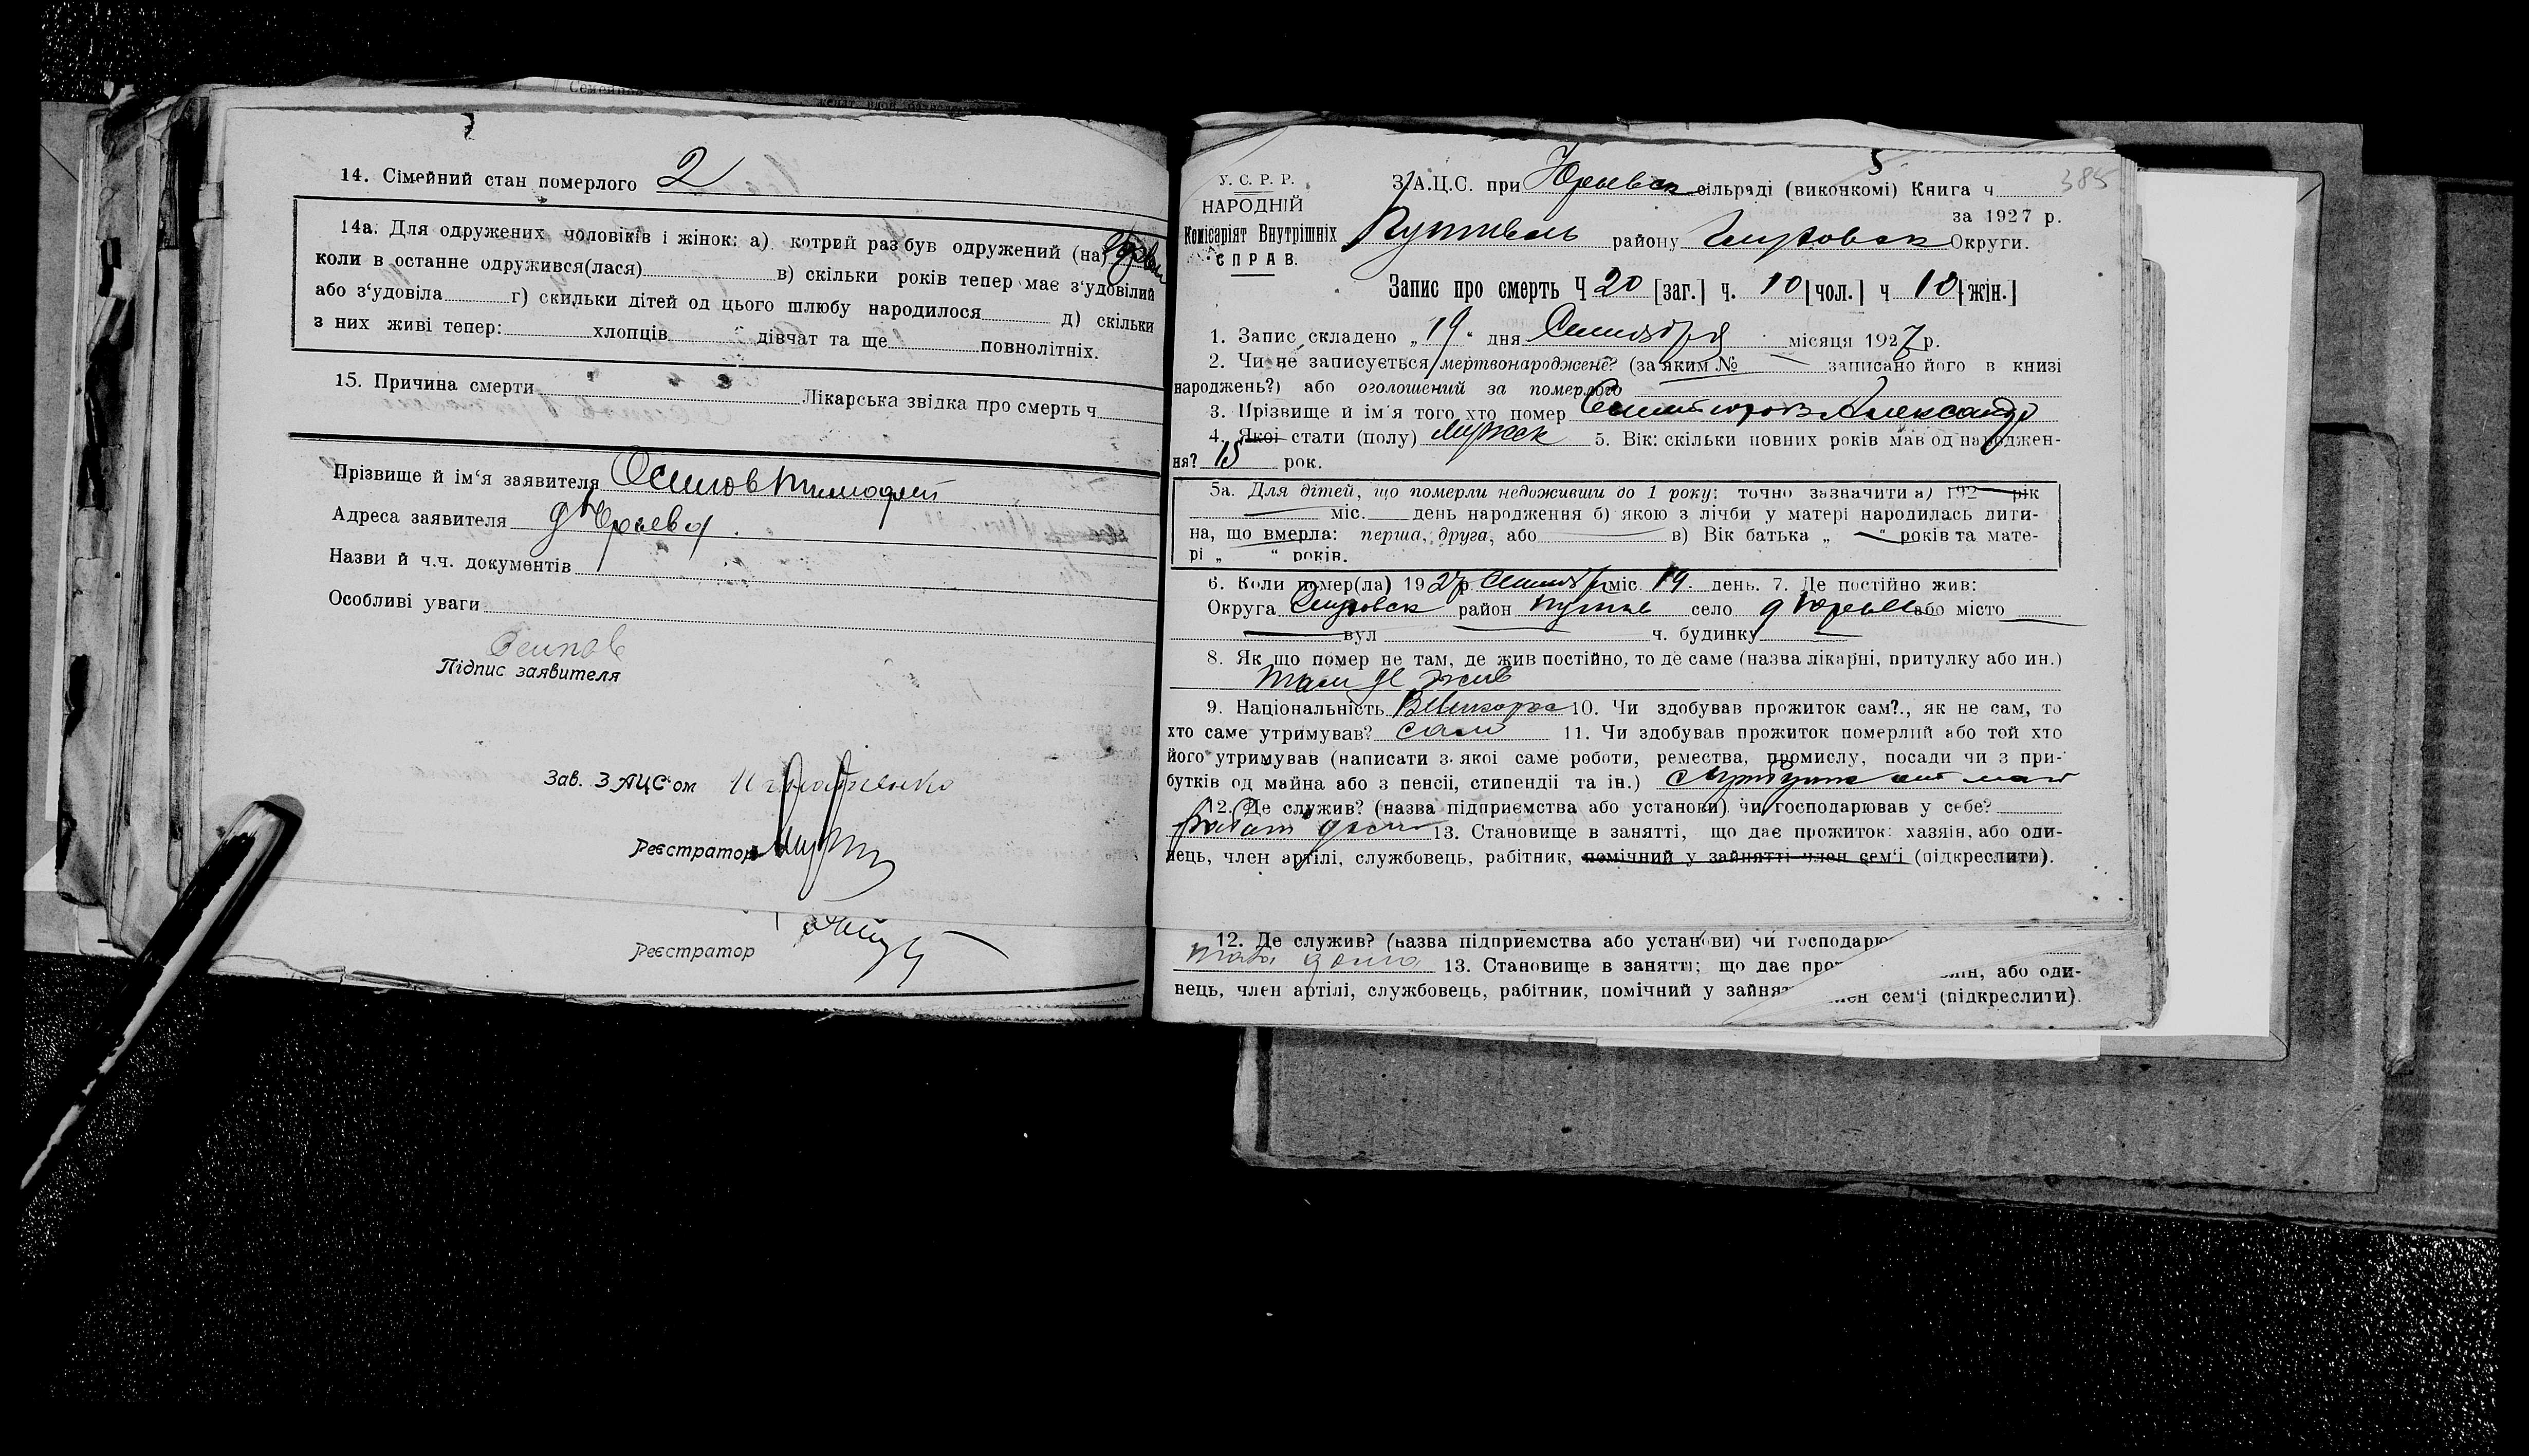 14. Сімейний стан померлого 2
14а. Для одружених чоловіків і жінок: а) котрий раз був одружений (на)
коли в останне одружився(лася) в) скільки років тепер має з'удовілий
або з'удовіла г) скильки дітей од цього шлюбу народилося д) скільки
з них живі тепер: хлопців дівчат та ще повнолітніх.
15. Причина смерти Лікарська звідка про смерть ч
Прізвище й ім'я заявителя Осипов Тимофей
Адреса заявителя д Юрьева
Назви й ч.ч. документів
Особливі уваги
Осипов
Підпис заявителя
Зав. ЗАЦС'ом
Реєстратор
Реєстратор
У. С. Р. Р.
НАРОДНІЙ
Комісаріят Внутрішніх
СПРАВ.
5
385
З.А.Ц.С. при Юрьевск сільраді (виконкомі) Книга ч
за 1927 р.
Путивель району Глуховск Округи.
Запис про смерть Ч 20 [заг.] ч. 10 [чол.] ч 10 [жін.]
1. Запис складено „19" дня Сентября місяця 1927 р.
2. Чи не записується мертвонароджене? (за яким № записано його в книзі
народжень?) або оголошений за померлого
3. Прізвище й ім'я того хто помер Александр
4. Якої стати (полу) Мужск 5. Вік: скільки повних років мав од народжен-
ня? 15 рок.
5а. Для дітей, що померли недоживши до 1 року: точно зазначити а) 192 рік
міс. день народження б) якою з лічби у матері народилась дити-
на, що вмерла: перша, друга, або в) Вік батька „ " років та мате-
рі „ " років.
6. Коли помер(ла) 1927р. Сентябр міс. 19. день. 7. Де постійно жив:
Округа Глуховск район Путив село д Юрьев або місто
вул ч. будинку
8. Як що помер не там, де жив постійно, то де саме (назва лікарні, притулку або ин.)
там де жив
9. Національність Великорос 10. Чи здобував прожиток сам?., як не сам, то
хто саме утримував? сам 11. Чи здобував прожиток померлий або той хто
його утримував (написати з якої саме роботи, ремества, промислу, посади чи з при-
бутків од майна або з пенсії, стипендії та ін.)
12. Де служив? (назва підприємства або установи) чи господарював у себе?
13. Становище в занятті, що дає прожиток: хазяін, або оди-
нець, член артілі, службовець, рабітник, помічний у зайнятті член сем'і (підкреслити).
12. Де служив? (назва підприємства або установи) чи господарю
13. Становище в занятті; що дає про ін, або оди-
нець, член артілі, службовець, рабітник, помічний у зайня член сем'і (підкреслити).